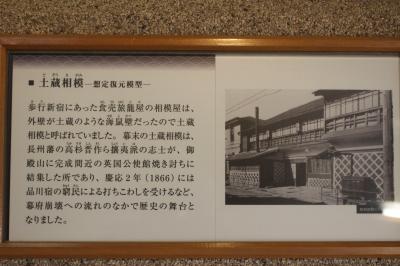 ■ 土蔵相模―想定復元模型―
歩行新宿にあった食売旅籠屋の相模屋は、
外壁が土蔵のような海鼠壁だったので土蔵
相模と呼ばれていました。幕末の土蔵相模は、
長州藩の高杉晋作ら攘夷派の志士が、御
殿山に完成間近の英国公使館焼き討ちに
結集した所であり、慶応2年(1866)には
品川宿の窮民による打ちこわしを受けるなど、
幕府崩壊への流れのなかで歴史の舞台と
なりました。